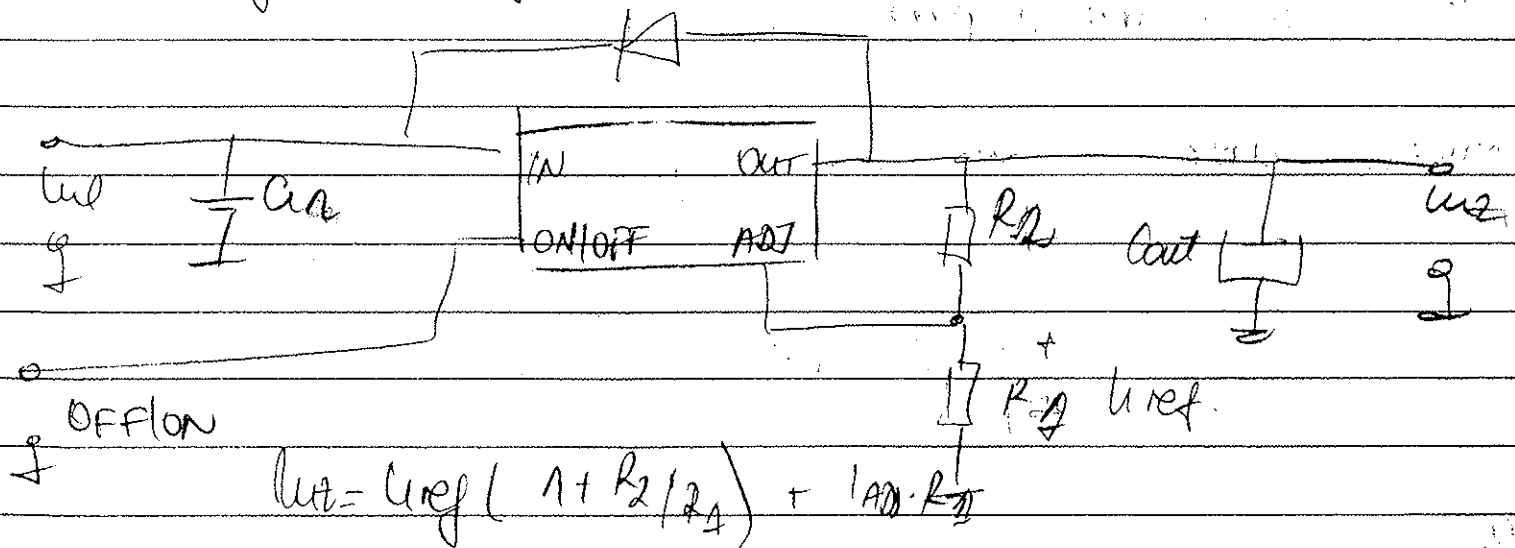 IN OUT
Uul Cin
ON/OFF ADJ R2 Cout Uiz
+
R1 Uref.
OFF/ON
Uiz = Uref ( 1 + R2/R1 ) + IADJ · R2